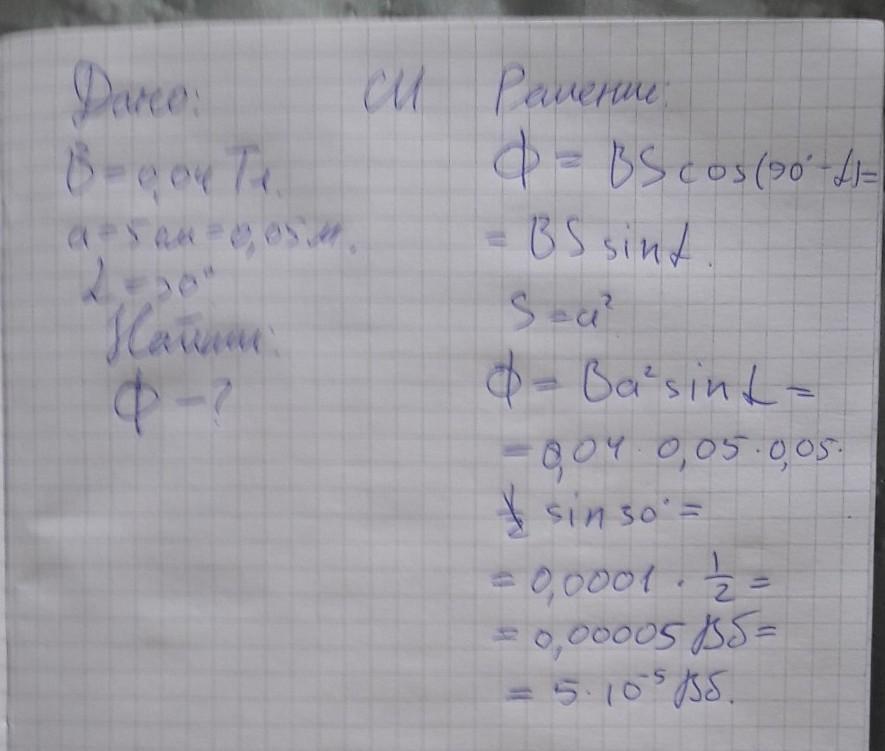 Дано:
B = 0,04 Тл.
a = 5 см = 0,05 м.
α = 30°
Найти:
Ф - ?
СИ
Решение:
Ф = BS cos(90° - α) =
= BS sin α.
S = a²
Ф = Ba² sin α =
= 0,04 · 0,05 · 0,05 ·
sin 30° =
= 0,0001 · 1/2 =
= 0,00005 Вб =
= 5 · 10⁻⁵ Вб.